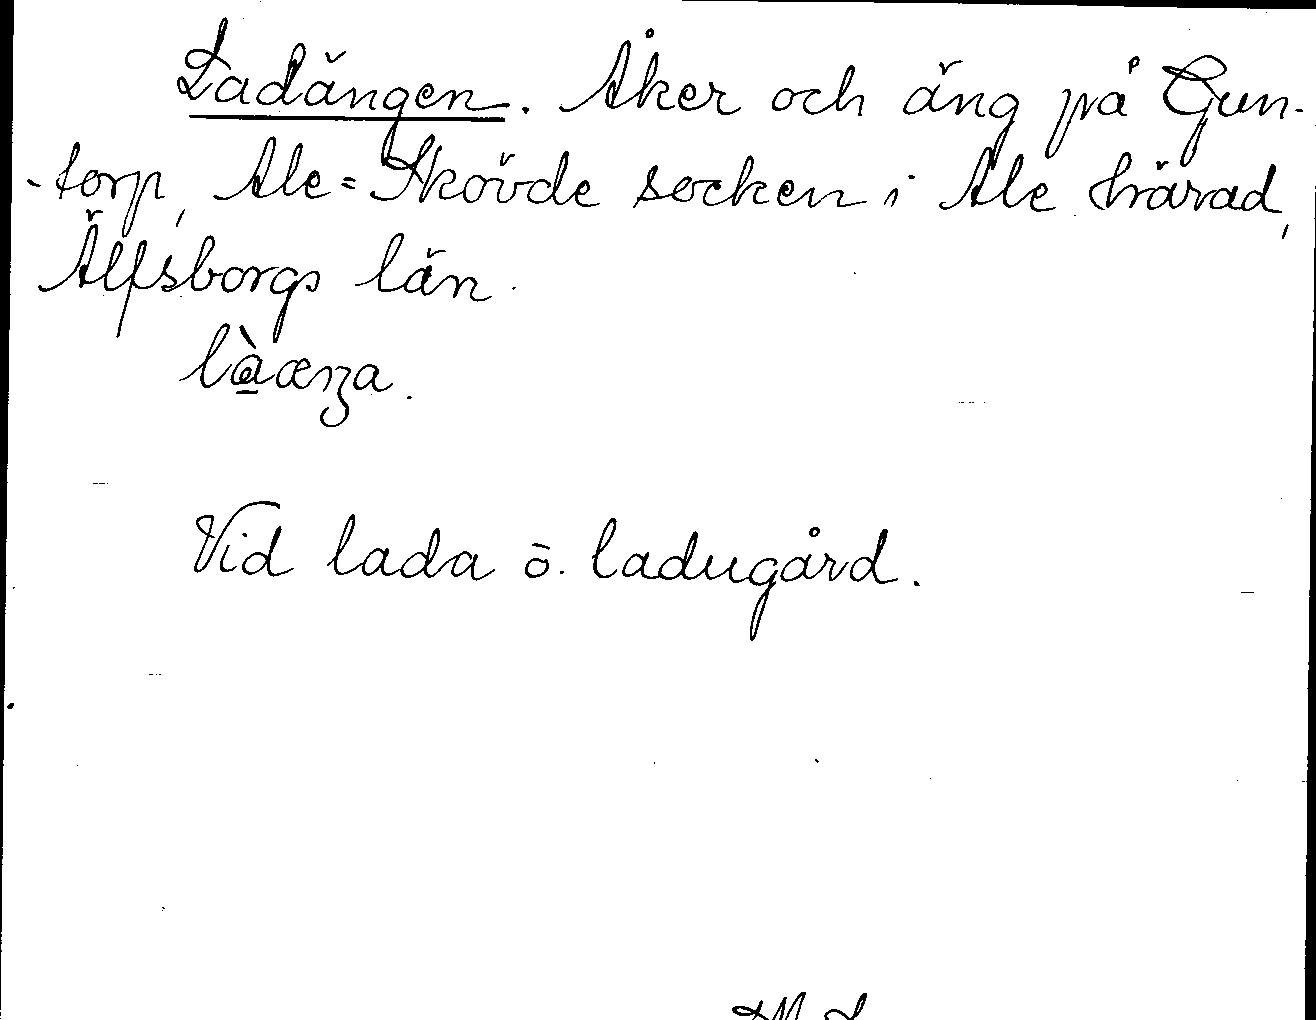 Ladängen. Åker och äng på Gun-
-torp, Ale=Skövde socken i Ale härad,
Älfsborgs län.
Vid lada o. ladugård.